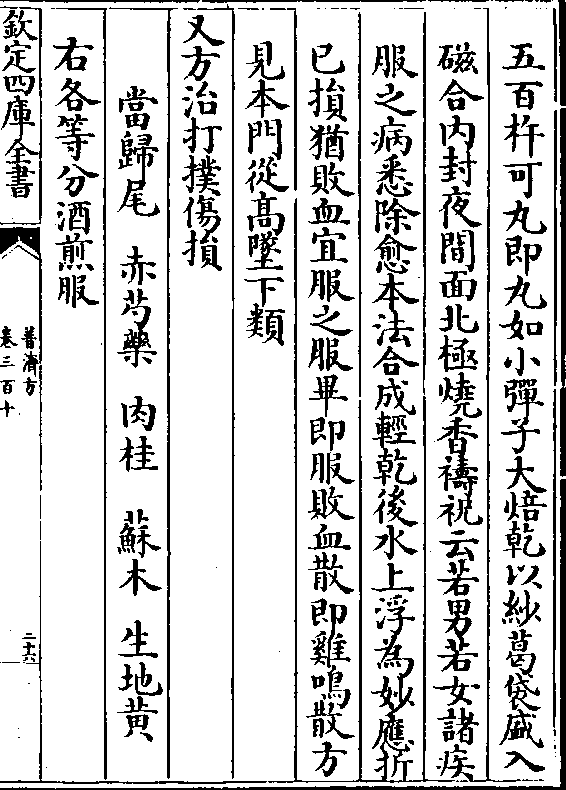 五百杵可丸即丸如小彈子大焙乾以紗葛袋盛入
磁合内封夜間面北極燒香禱祝云若男若女諸疾
服之病悉除愈本法合成輕乾後水上浮為妙應折
已損猶敗血宜服之服畢即服敗血散即雞鳴散方
見本門從髙墜下類
又方治打撲傷損
當歸尾　赤芍藥　肉桂　蘇木　生地黄
右各等分酒煎服
欽定四庫全書
普濟方
卷三百十
二十六